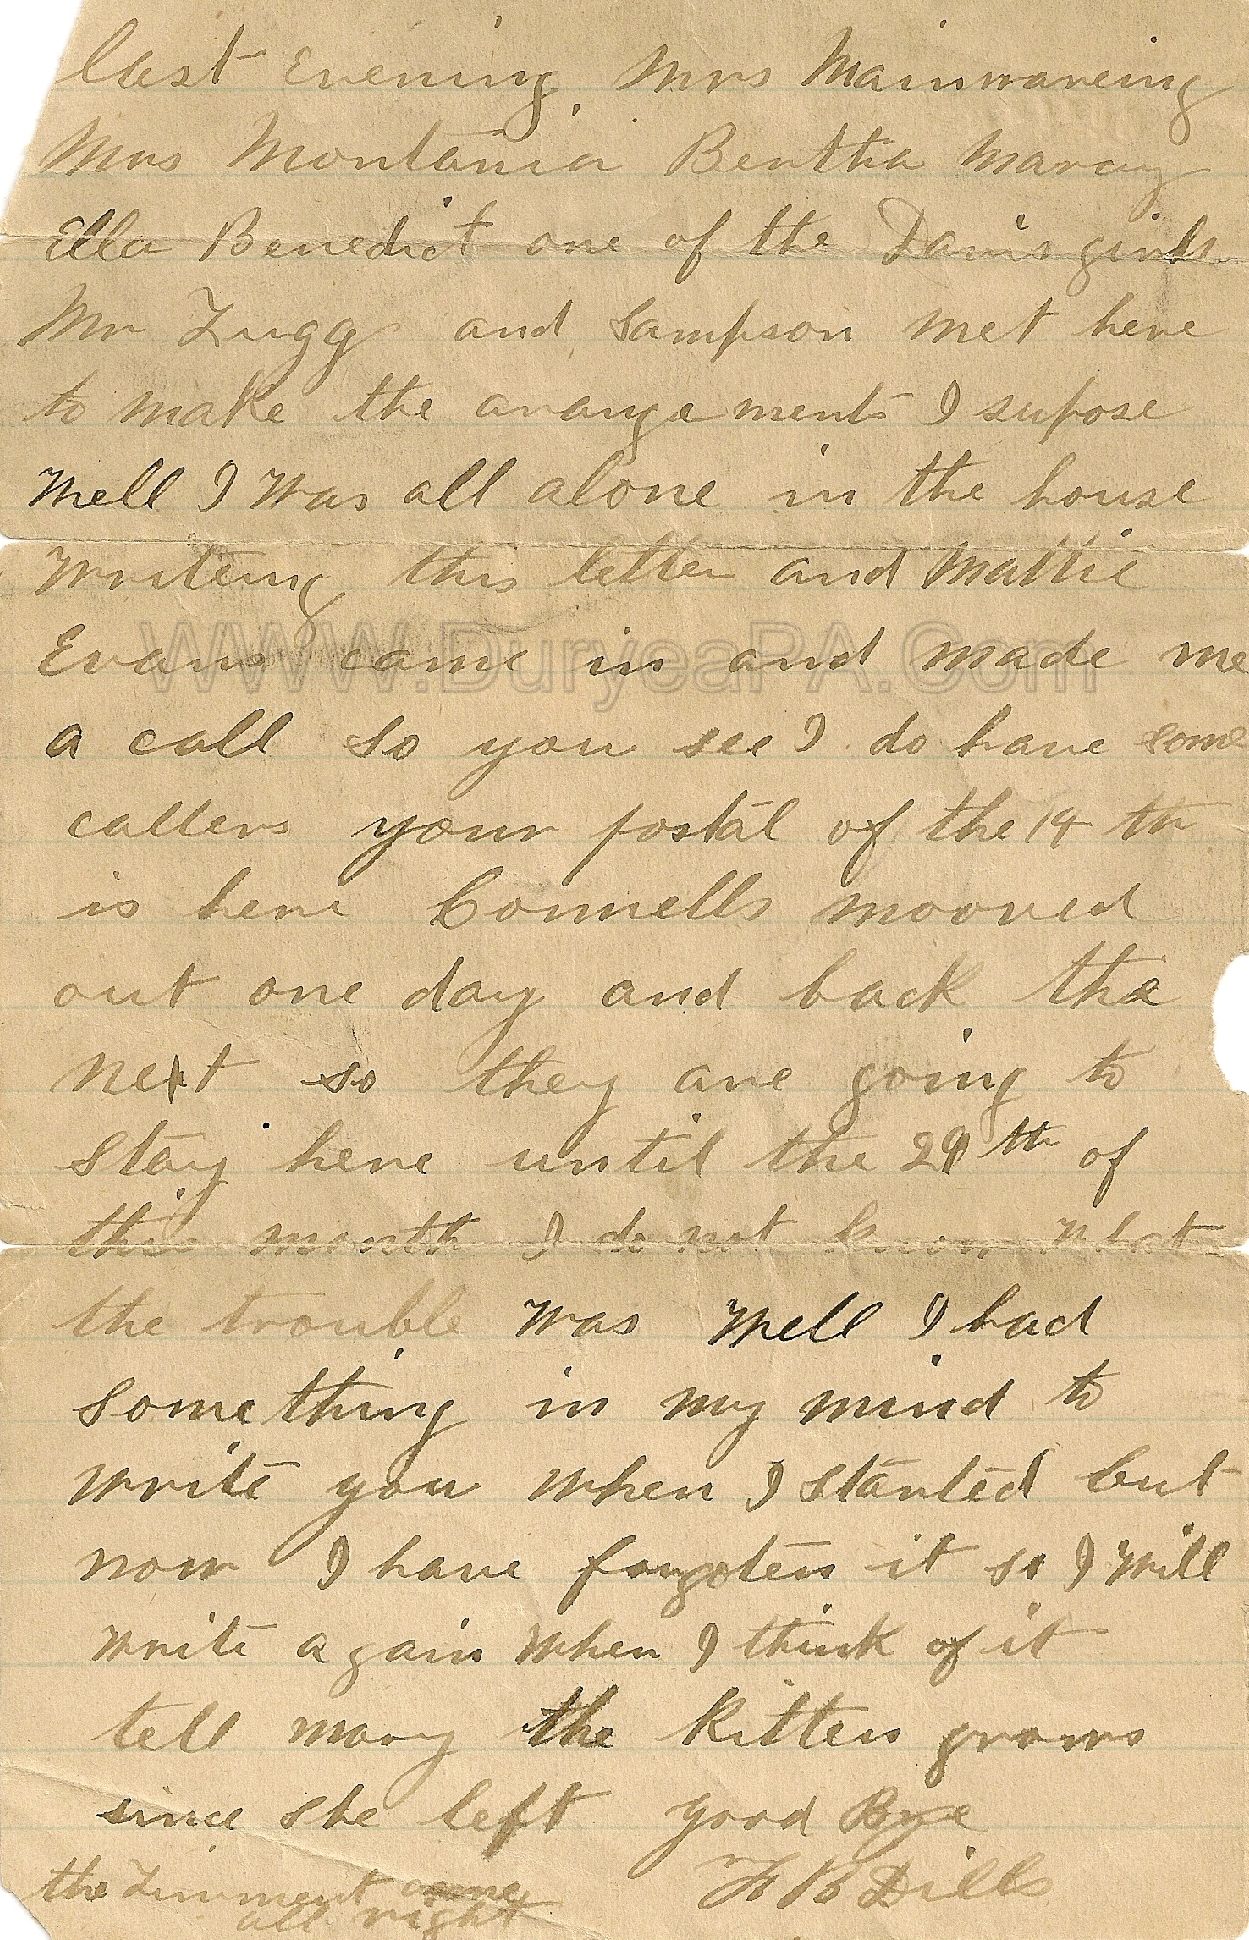 last Evening, Mrs Mainwareing
Mrs Montania Bertha Marcy
Ella Benedict one of the Davis girls
Mr Zugg and Sampson met here
to make the arangements I supose
Well I was all alone in the house
writeing this letter and Mattie
Evans came in and made me
a call so you see I do have some
callers your postal of the 19 th
is here Connells mooved
out one day and back the
next so they are going to
stay here until the 29th of
this month I do not know what
the trouble was Well I had
something in my mind to
write you when I started but
now I have forgoten it so I will
write again when I think of it
tell mary the kitten grows
since she left good Bye
the Linment came
all right
Dills
WWW.DuryeaPA.Com